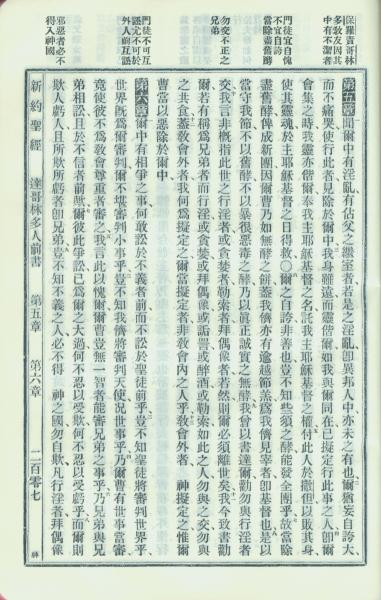 保羅責哥林
多教友因其
中有不潔者
門徒宜自愧
不宜自誇
當除舊酵
勿交不正之
兄弟
門徒不可互
訟尤不可於
外人前互訟
邪惡者必不
得入神國
第五章 聞爾中有淫亂有佔父之繼室者若是之淫亂卽異邦人中亦未之有也爾猶妄自誇大
而不痛哭使行此者見除於爾中我身雖遠而靈偕爾如我與爾同在已擬定行此事之人卽爾
會集之時我靈亦偕爾奉我主耶穌基督之名託我主耶穌基督之權付此人於撒但以敗其身
使其靈魂於主耶穌基督之日得救〇爾之自誇非善也豈不知些須之酵能發全團乎故當除
盡舊酵俾成新團因爾曹乃如無酵之餅蓋我儕亦有逾越節羔爲我儕見宰者卽基督也是以
當守我節不以舊酵不以暴很惡毒之酵乃以眞正誠實之無酵我曾以書達爾勸勿與行淫者
交我言非概指此世之行淫者或貪婪者勒索者拜偶像者若然則爾必須離世矣我今致書勸
爾若有稱爲兄弟者而行淫或貪婪或拜偶像或詬詈或醉酒或勒索如此之人勿與之交勿與
之共食蓋教會外者我何爲擬定之爾當擬定者非教會內之人乎教會外者 神擬定之惟爾
曹當以惡除於爾中
第六章 爾中有相爭之事何敢訟於不義者前而不訟於聖徒前乎豈不知聖徒將審判世界乎
世界旣爲爾審判爾不堪審判小事乎豈不知我儕將審判天使况世事乎乃爾曹有世事當審
竟使彼不爲教會尊重者審之我言此以愧爾爾曹豈無一智者能審兄弟之事乎乃兄弟與兄
弟相訟且於不信者前爾彼此爭訟已爲爾之大過何不忍以受欺何不忍以受虧乎爾則
欺人虧人且所欺所虧者卽兄弟豈不知不義之人必不得 神之國勿自欺凡行淫者拜偶像
新約聖經 達哥林多人前書 第五章 第六章 二百零七